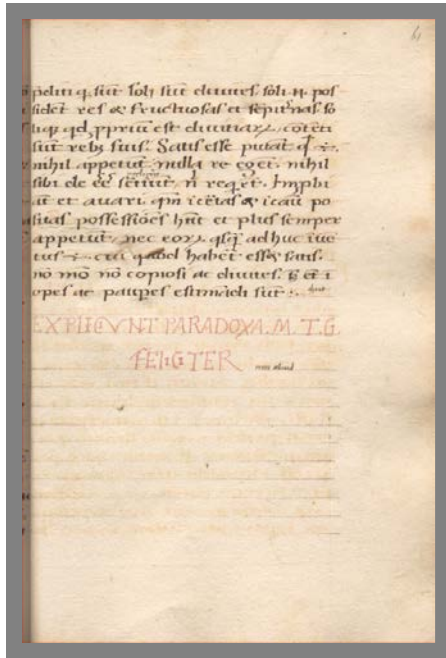 pditi q̃ sūt soli sūt diuites. soli .n. pos
sidēt res & fructuosas et sēpit̃nas so
liq; qd̃ ppriū est diuitiaꝝ cōtēti
sūt rebꝫ suis. Satis esse putāt qd̃ ē.
nihil appetūt. nulla re egēt. nihil
sibi de eē sētiūt, ñ reqr̃ēt. Impbi
aūt et auari. qm̃ ic̃ētas & ī cāū po
sitas possessiōes hñt et plus semper
appetūt, nec eoꝝ. qsq̃ ad huc īuē
tus ē. cui quod habēt essꝫ satis.
nō mō nō copiosi ac diuites. sꝫ ēt ī
opes ac paupes estimādi sūt :.
EXPLICVNT PARADOXA. M. T. C.
FELICITER